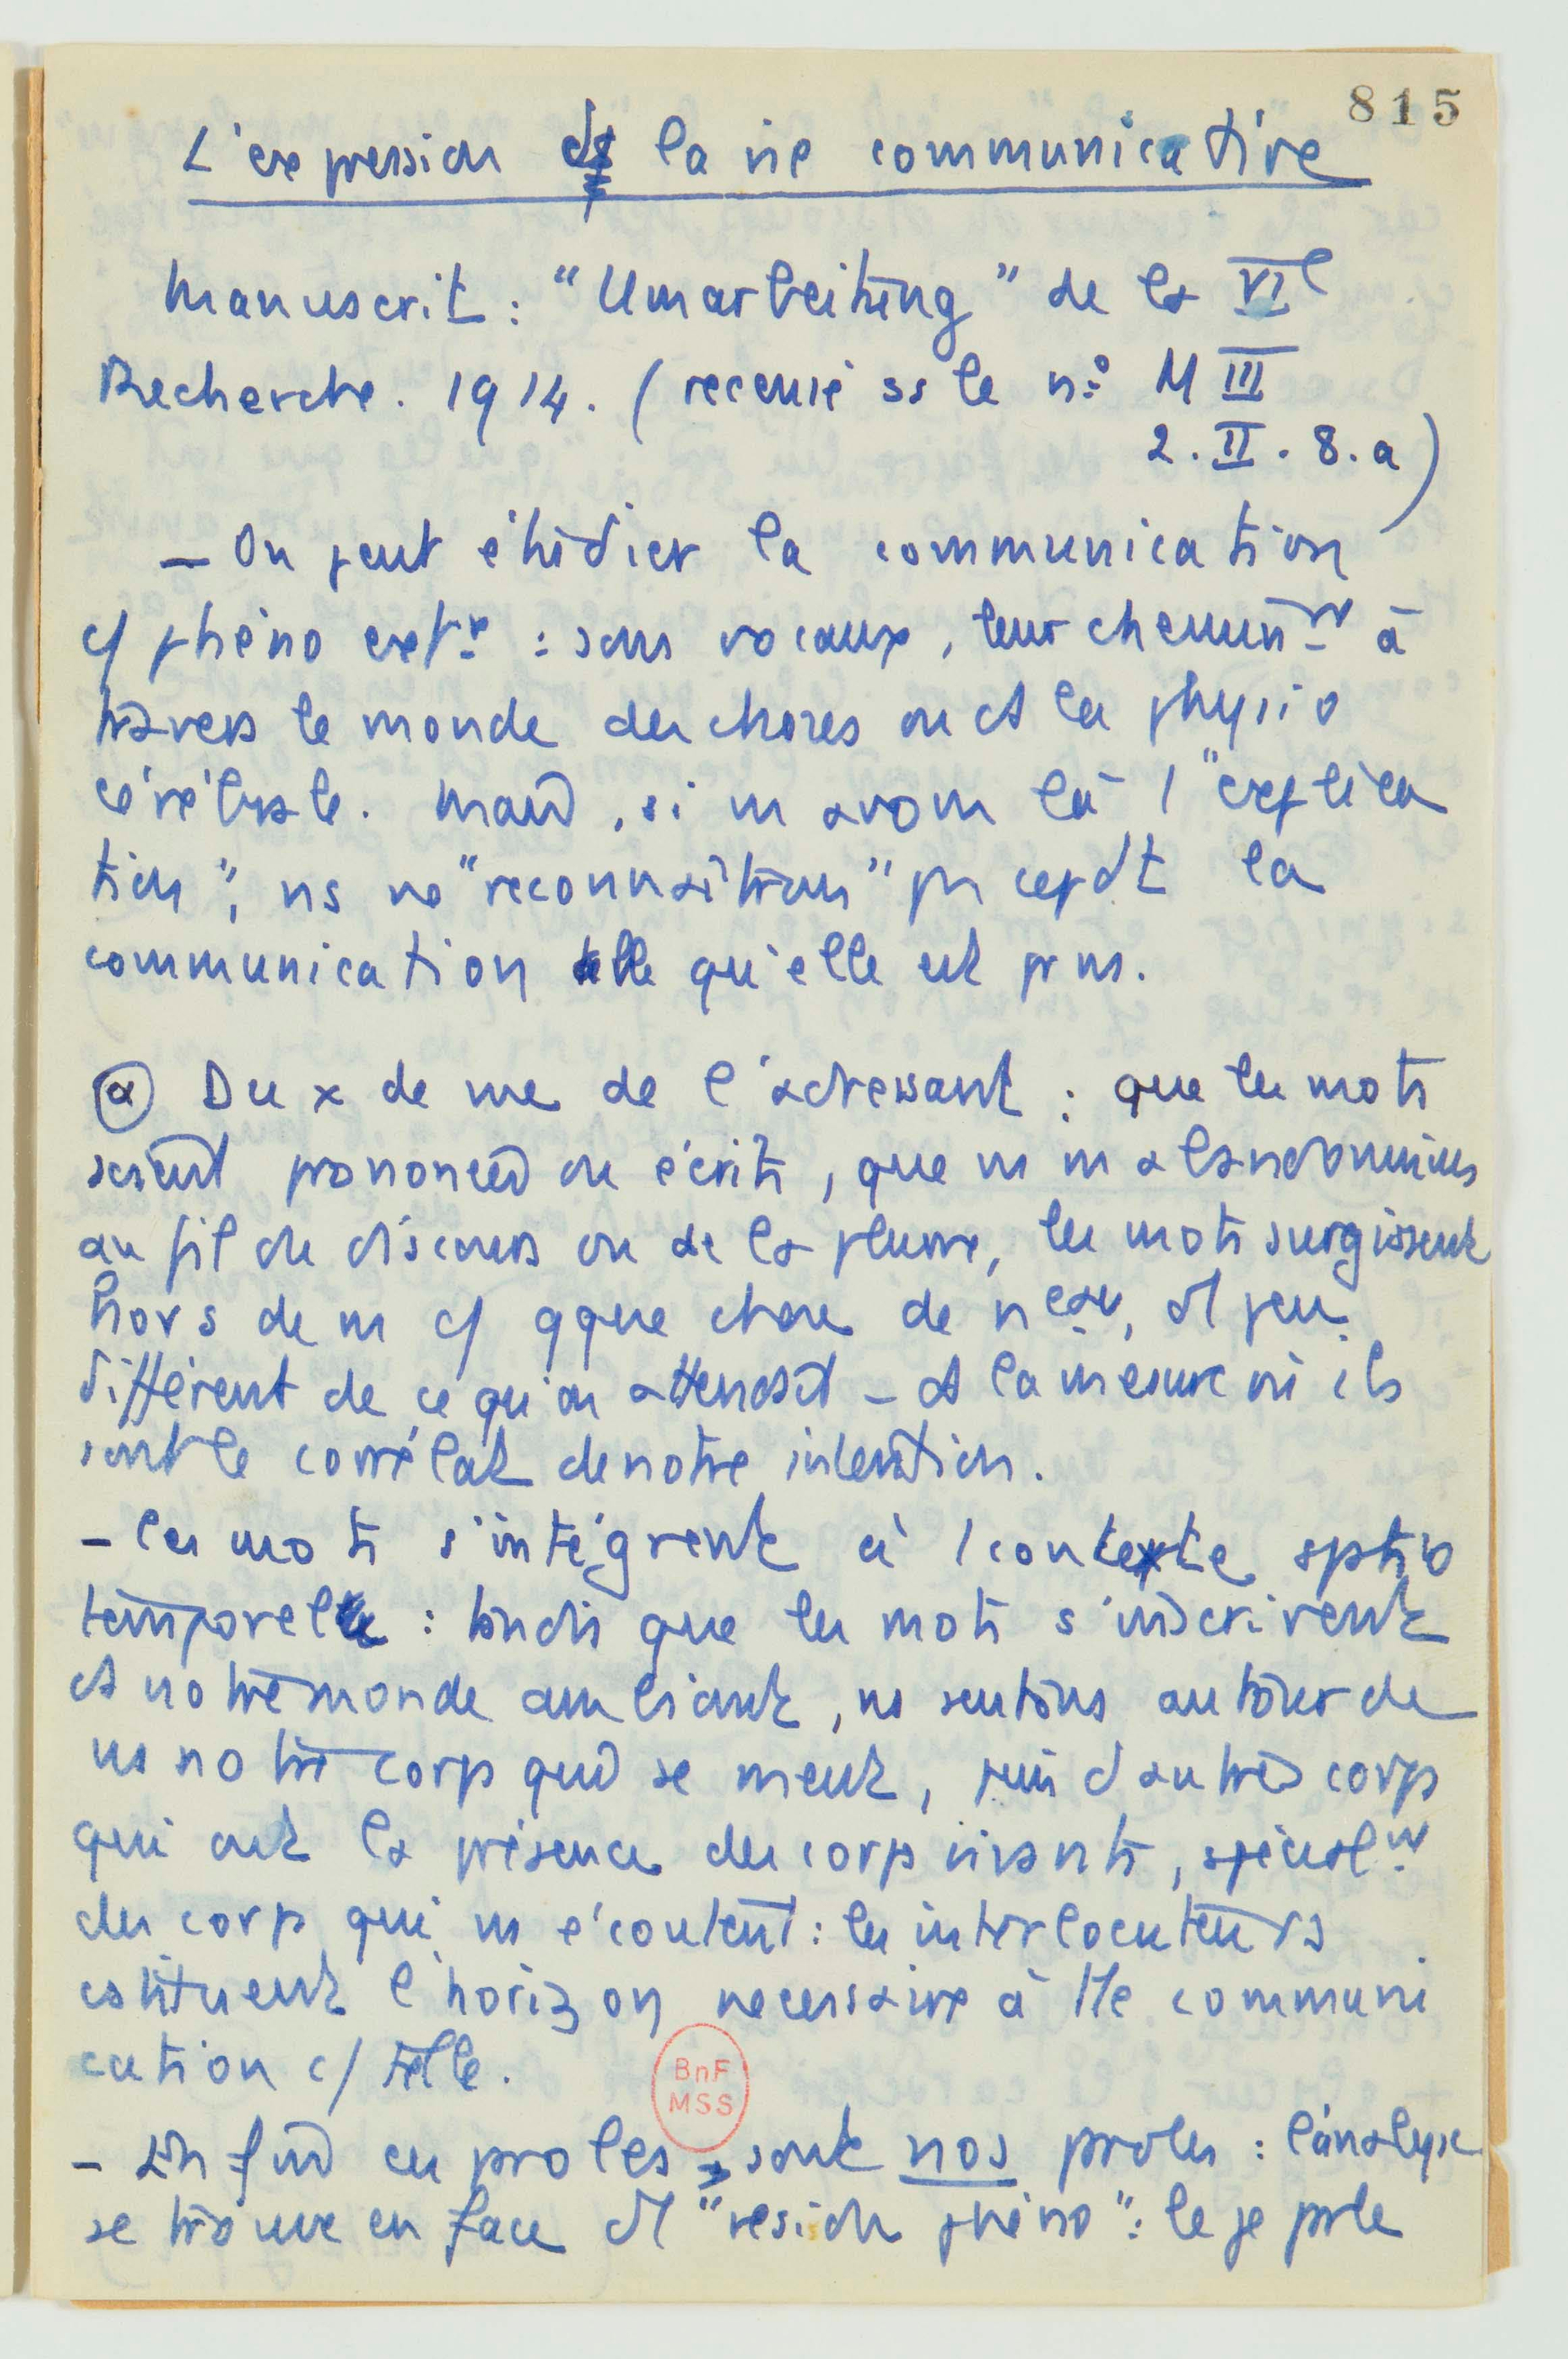 815
L'expression ds la vie communicative
Manuscrit : "Umarbeitung" de la VIe
Recherche. 1914. (recensé ss le n° M III
2. II. 8. a)
— On peut étudier la communication
c/ phéno extr : sons vocaux, leur cheminnt à
travers le monde des choses ou ds la physio
cérébrale. Mais, si ns avons là 1 "explica
tion", ns ne "reconnaîtrons" pas cepdt la
communication telle qu'elle est pr ns.
(α) Du x de vue de l'adressant : que les mots
soient prononcés ou écrits, que ns ns abandonnions
au fil du discours ou de la plume, les mots surgissent
hors de ns c/ qque chose de nveau, d'1 peu
différent de ce qu'on attendait – ds la mesure où ils
sont le corrélat de notre intention.
– les mots s'intègrent à 1 contexte sptio
temporel : tandis que les mots s'inscrivent
ds notre monde ambiant, ns sentons autour de
ns notre corps qui se meut, puis d'autres corps
qui ont la présence des corps vivants, spécialnt
des corps qui ns écoutent : les interlocuteurs
cstituent l'horizon nécessaire à tte communi
cation c/ telle.
BnF
MSS
– Enfin ces proles sont nos proles : l'analyse
se trouve en face d'1 "résidu phéno" : le je prle